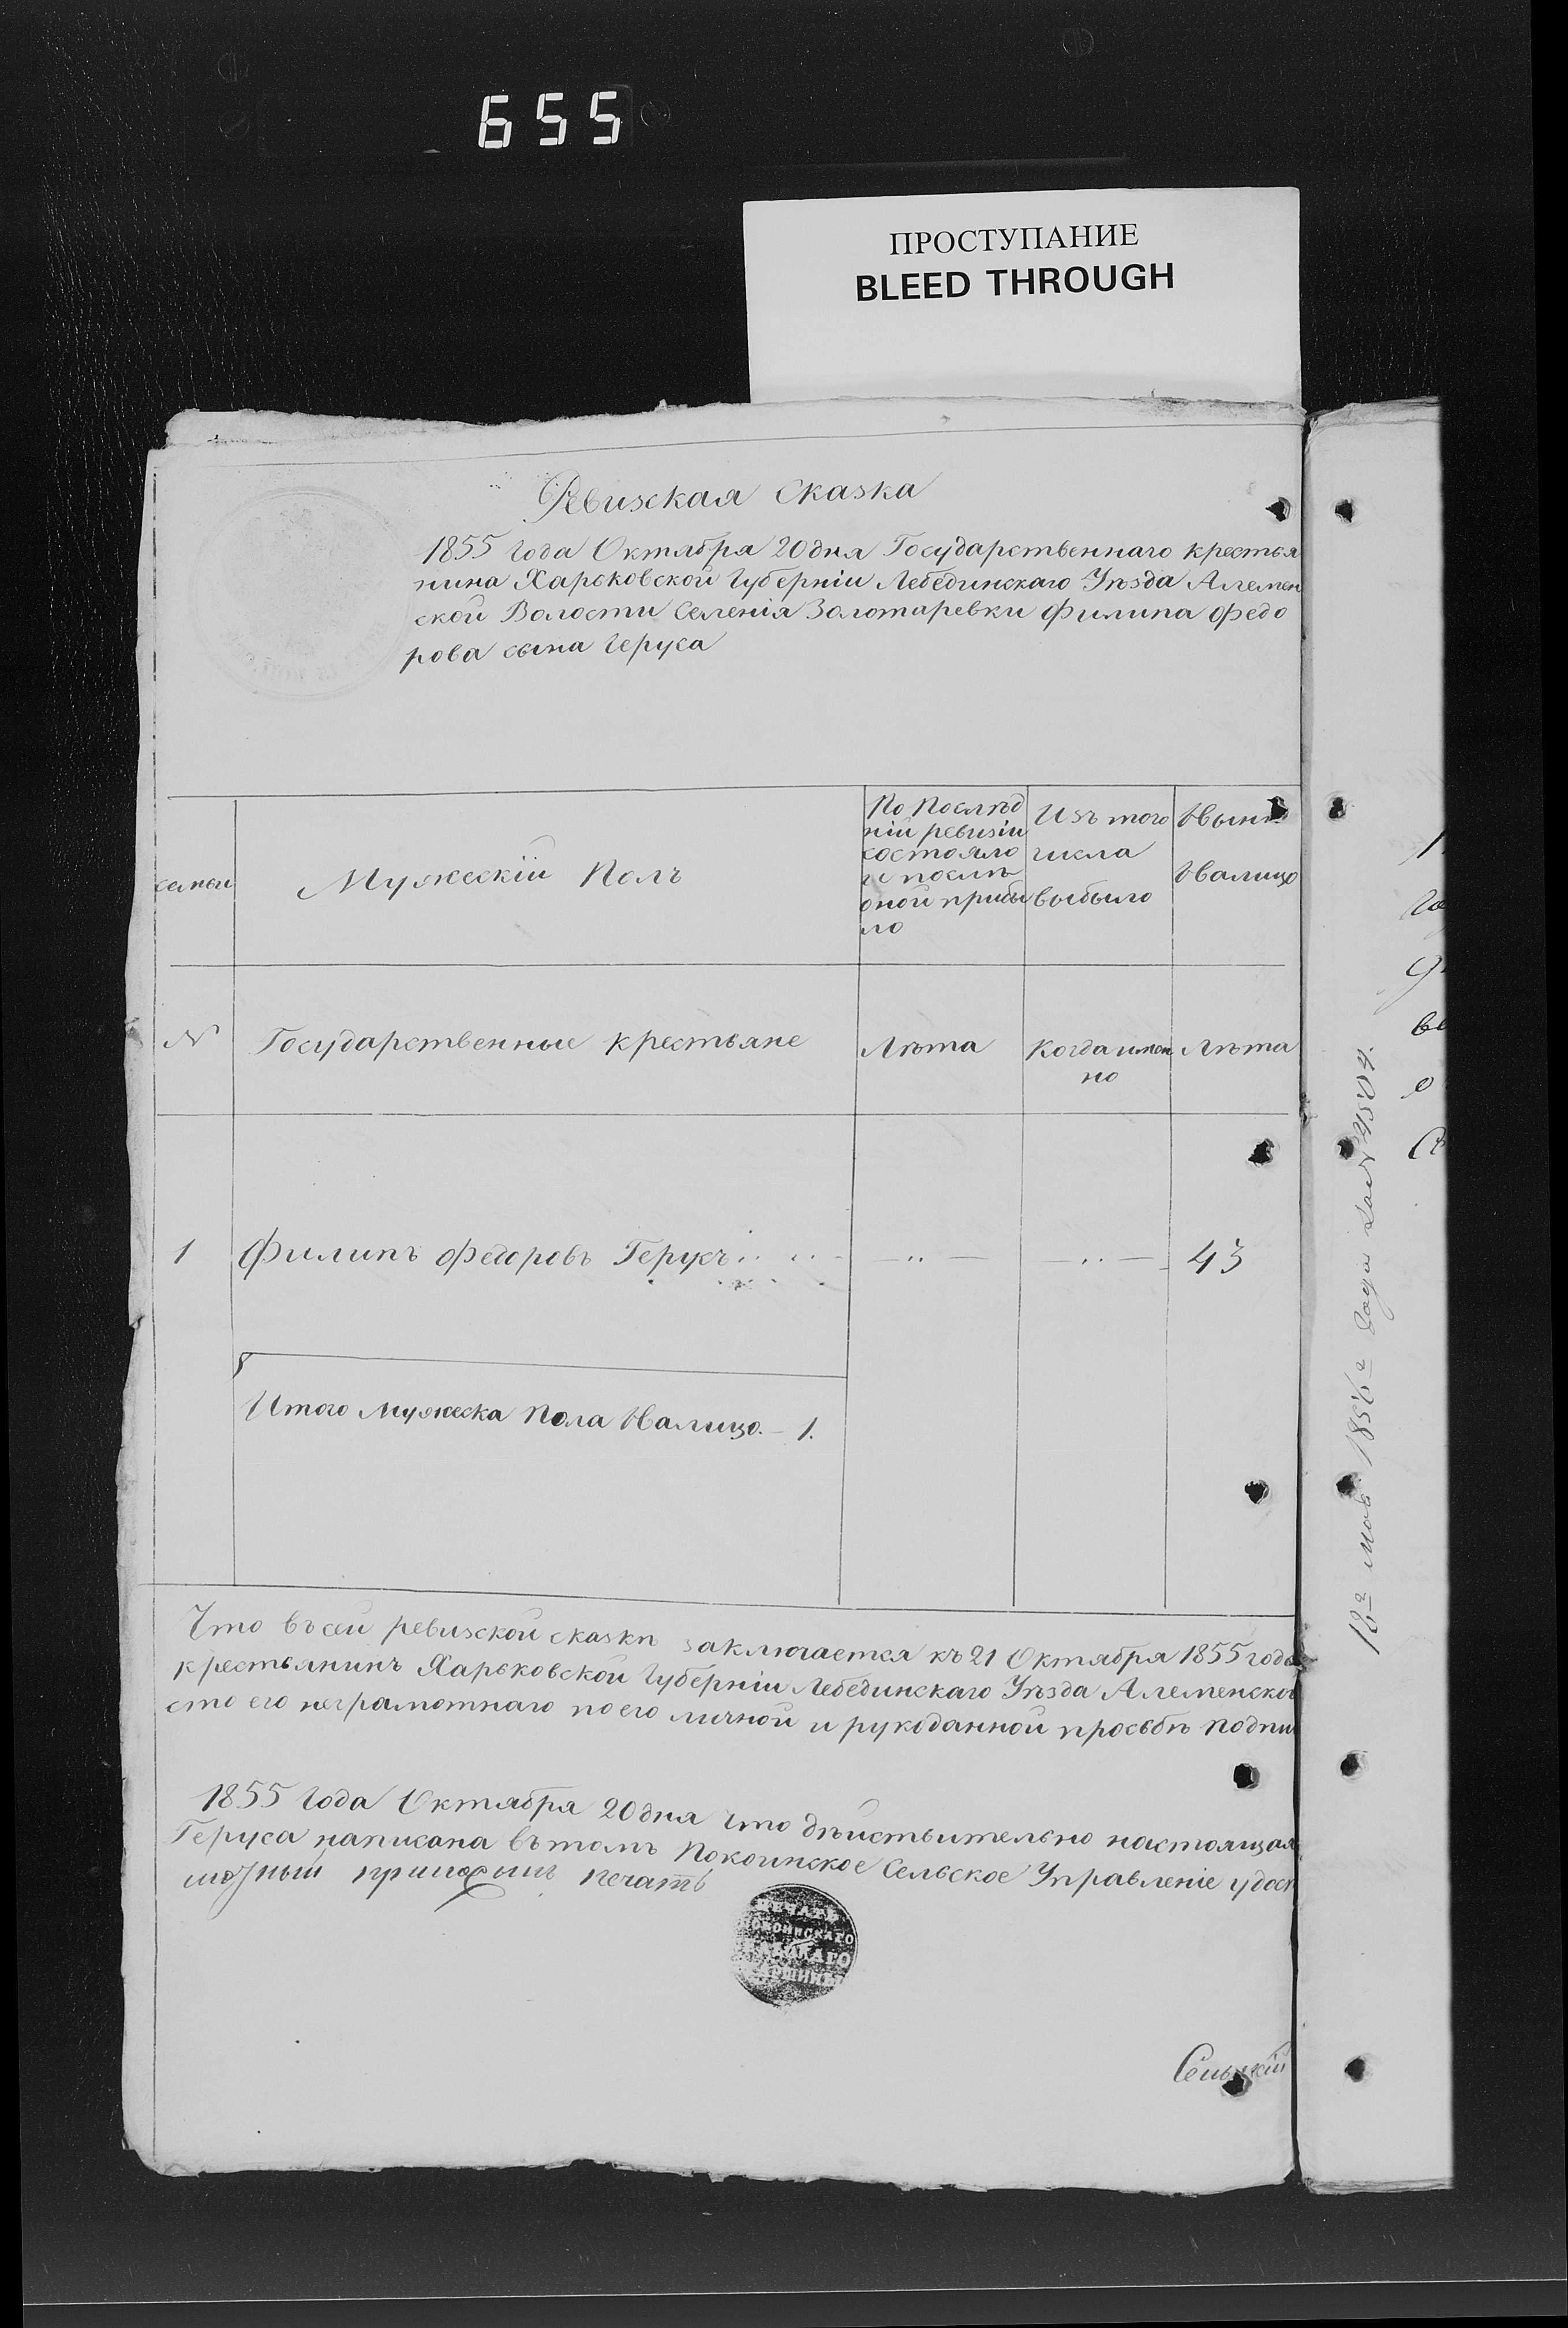 655
ПРОСТУПАНИЕ
BLEED THROUGH
Ревизская Сказка
1855 Года Октября 20 дня Государственнаго крестья
нина Харьковской Губерніи Лебединскаго Уѣзда Алемен
ской Волости Селенія Золотаревки Филипа Федо
рова сына Геруса
семьи
Мужескій Полъ
По Послѣд
ніи ревизіи
состояло
и послѣ
оной прибы
ло
Изъ того
числа
выбыло
Нынѣ
Налицо
N
Государственные крестьяне
Лѣта
Когда имен
но
Лѣта
1
Филипъ Федоровъ Герусъ
43
Итого Мужеска Пола Налицо. – 1.
Что въ сеи ревизской сказкѣ заключается къ 21 Октября 1855 года
крестьянинъ Харьковской Губерніи Лебединскаго Уѣзда Алеменской
сто его неграмотнаго по его личной и рукоданной просьбѣ подпи
1855 Года Октября 20 дня Что дѣиствительно настоящая
Геруса написана въ томъ Покоинское Сельское Управленіе удост
печать
ПЕЧАТЬ
18го 1856го года 4504.